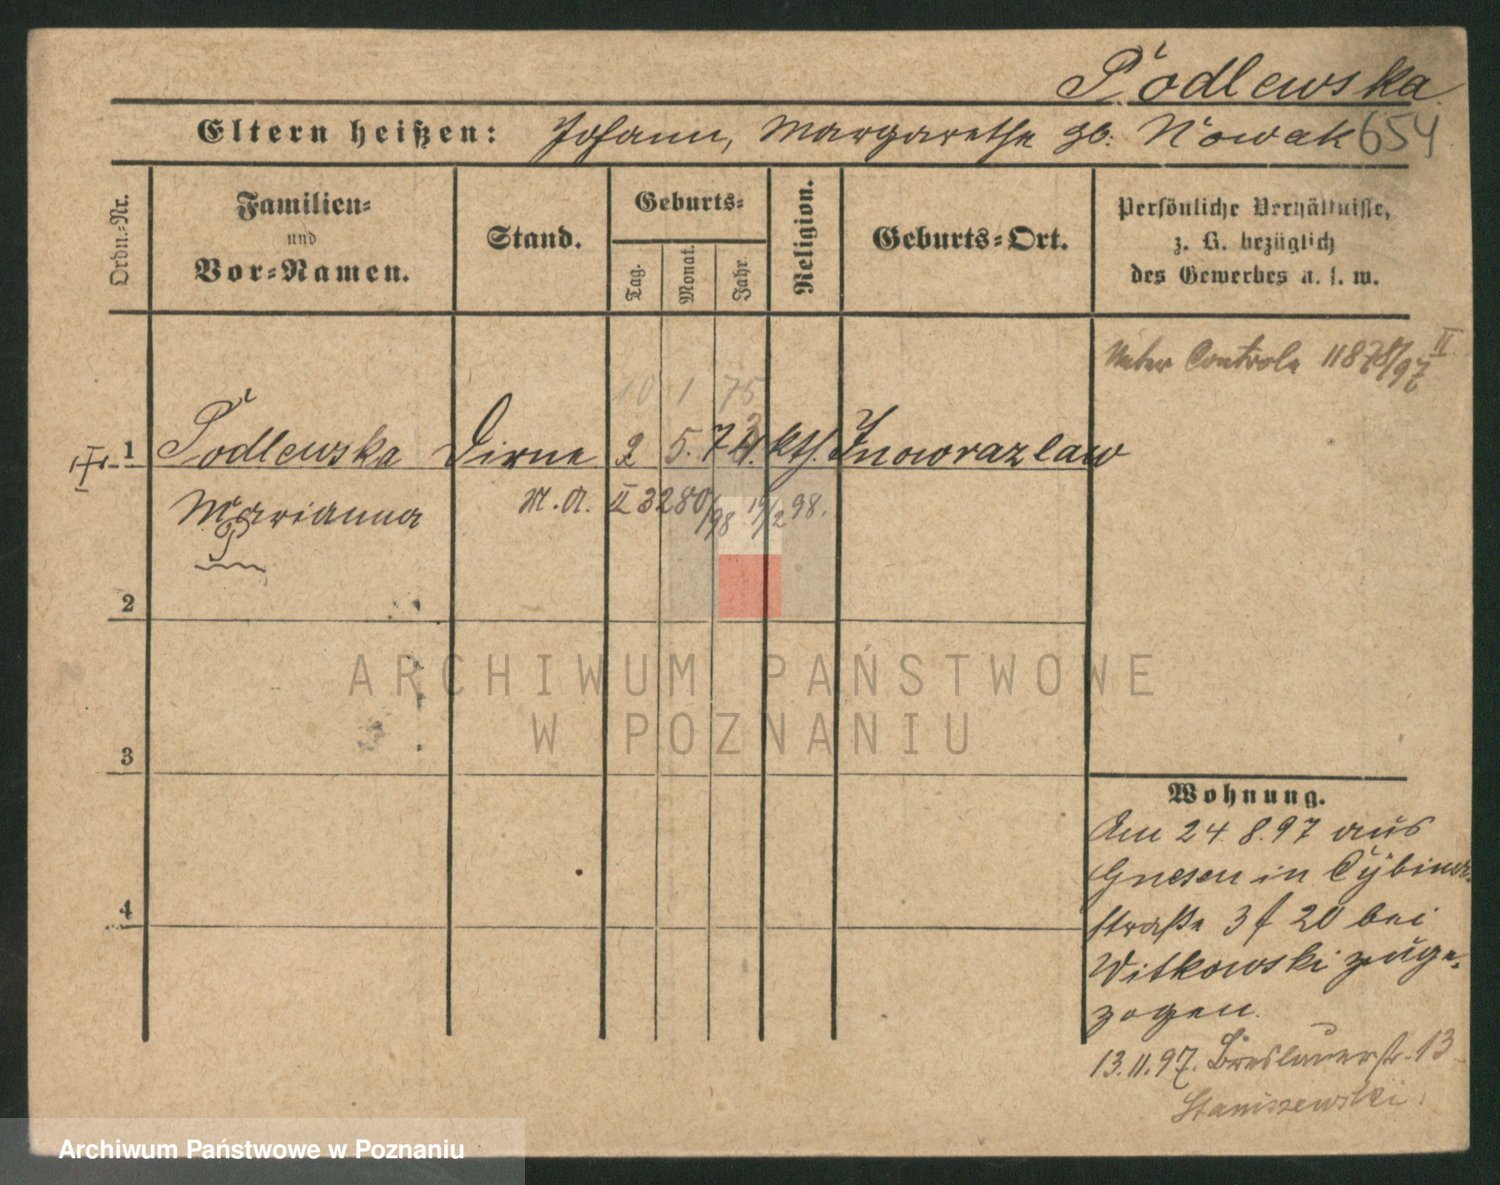 Podlewska
Eltern heißen: Johann, Margarethe gb. Nowak 654
Ordn.-Nr.
Familien-
und
Vor-Namen.
Stand.
Geburts-
Tag.
Monat.
Jahr
Religion.
Geburts-Ort.
Persönliche Verhältnisse,
z. B. bezüglich
des Gewerbes u. s. w.
Unter Controle 11878/97 II
10 1 75
1 Podlewska Dirne 2 5. 74. kth. Inowrazlaw
Marianna M. A. II 3280/98 19/2 98.
2
3
4
Wohnung.
Am 24.8.97 aus
Gnesen in Cybina-
straße 3 f 20 bei
Witkowski zuge-
zogen.
13.11.97. Breslauerstr. 13
Staniszewski.
ARCHIWUM PAŃSTWOWE
W POZNANIU
Archiwum Państwowe w Poznaniu